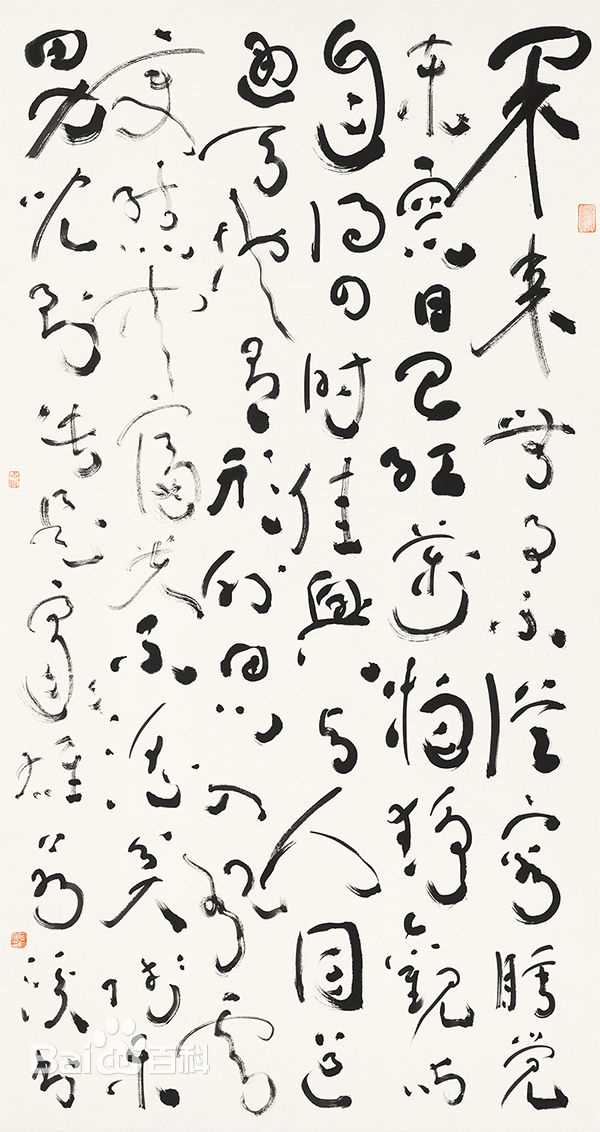 闲来無事不從容睡覺
東窗日已紅萬物靜觀皆
自得四时佳興与人同道
通天地有形外思入風雲
變態中富貴不淫貧賤樂
男兒到此是豪雄
Baidu百科